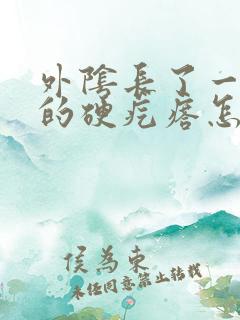 外陰長了一
的硬疙瘩怎
侯為東
未经同意禁止转载